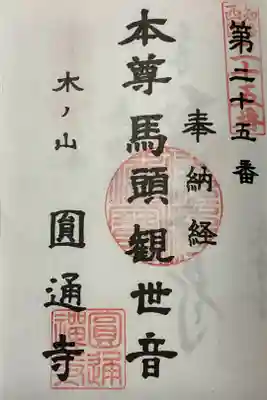 第二十五番
奉納経
本尊馬頭観世音
木ノ山
圓通寺
圓通禅寺